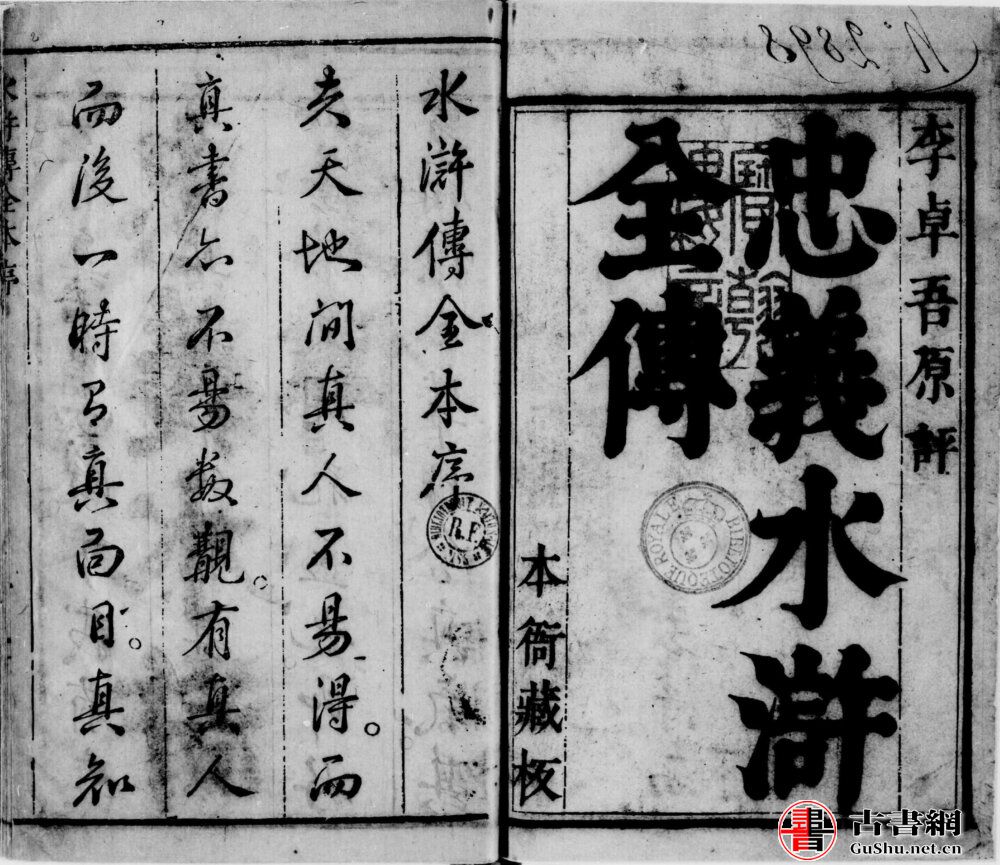 李卓吾原評
忠義水滸
全傳
本衙藏板
水滸傳全本序
夫天地間真人不易得。而
真書亦不易數覯。有真人
而後一時有真面目。真知
水滸傳全本序
Nº 2898
BIBLIOTEQUE ROYALE
R.F.
書 古書網
GuShu.net.cn